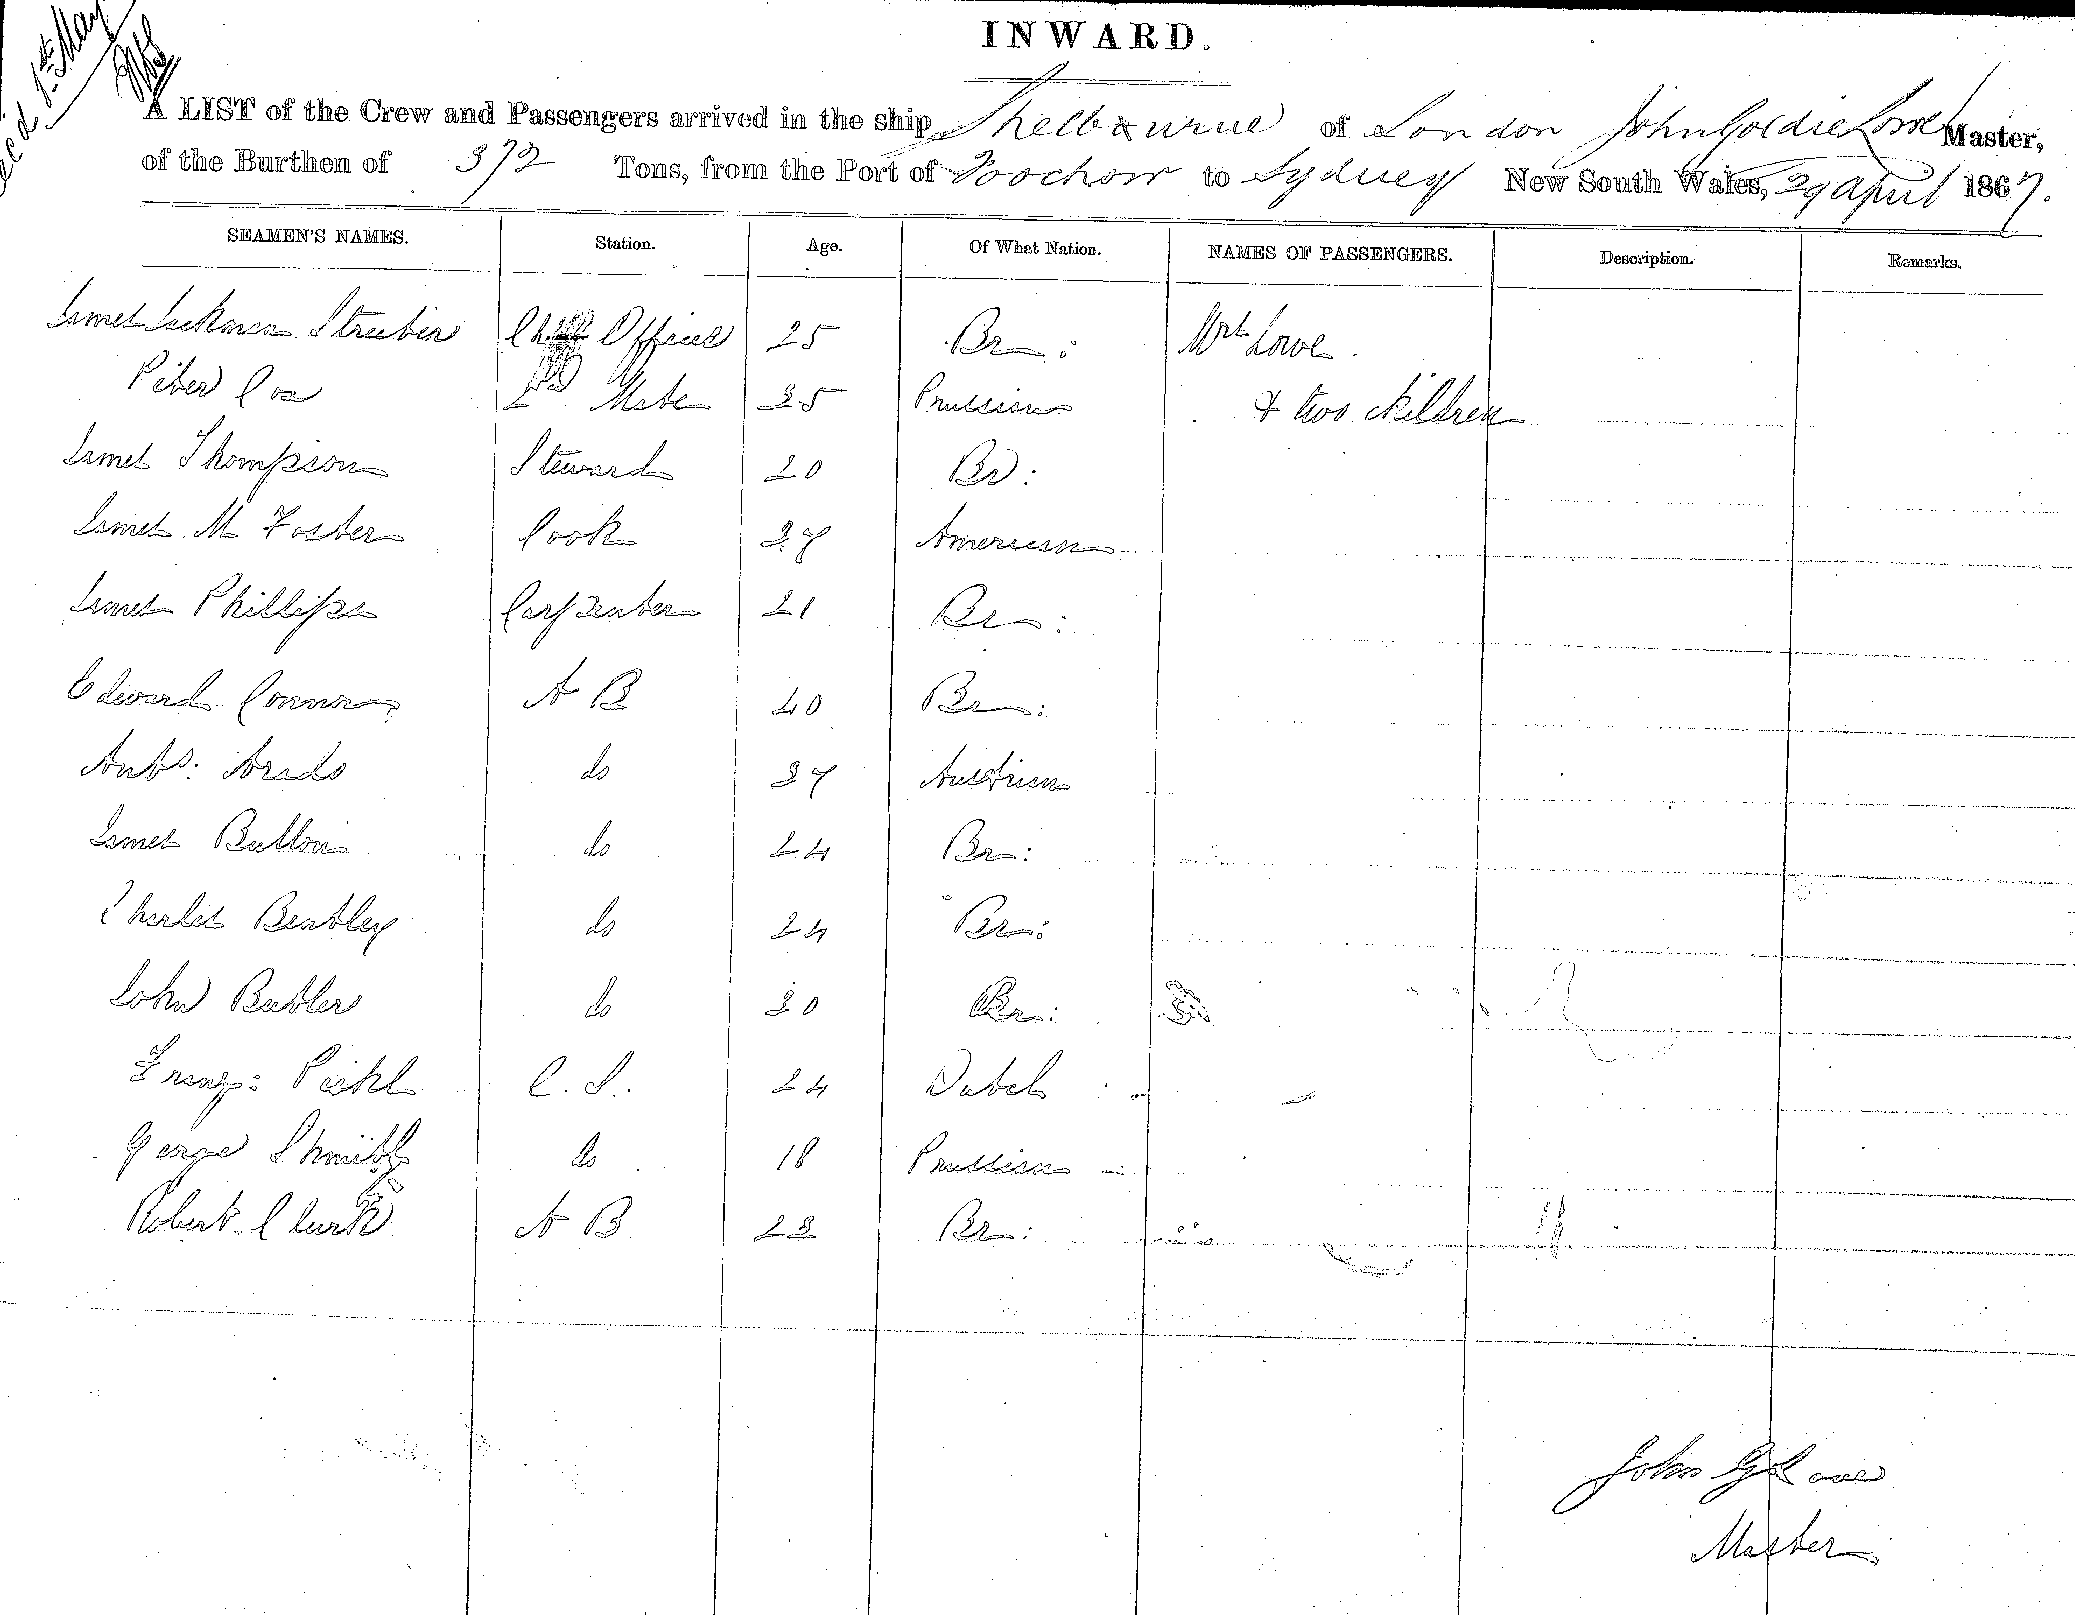 Recd 1st May
INWARD.
A LIST of the Crew and Passengers arrived in the ship Shelbourne of London John Goldie Lowe Master,
of the Burthen of 372 Tons, from the Port of Foochow to Sydney New South Wales, 29 April 1867.
SEAMEN'S NAMES. Station. Age. Of What Nation. NAMES OF PASSENGERS. Description. Remarks.
James Officer 25 Br: Mrs Lowe.
Peter Cos 2nd Mate 35 Prussian & two children
James Thompson Steward 20 Br:
James M Foster Cook 37 American
James Phillips Carpenter 21 Br:
Edward Connor A B 40 Br:
Anto: Arado do 37 Austrian
James Bullon do 24 Br:
Charles Bentley do 24 Br:
John Butler do 30 Br:
Franz: C. S. 24 Dutch
George Shmith do 18 Prussian
Robert Clark A B 23 Br:
John G Lowe
Master